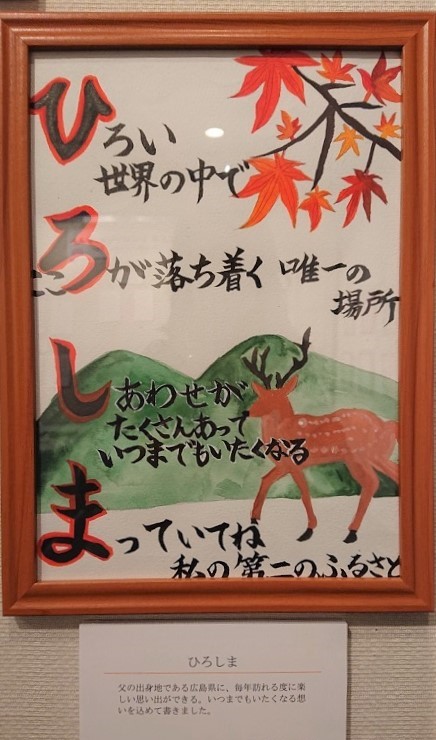 ひろい
世界の中で
こころが落ち着く 唯一の
場所
しあわせが
たくさんあって
いつまでもいたくなる
まっていてね
私の第二のふるさと
ひろしま
父の出身地である広島県に、毎年訪れる度に楽
しい思い出ができる。いつまでもいたくなる想
いを込めて書きました。